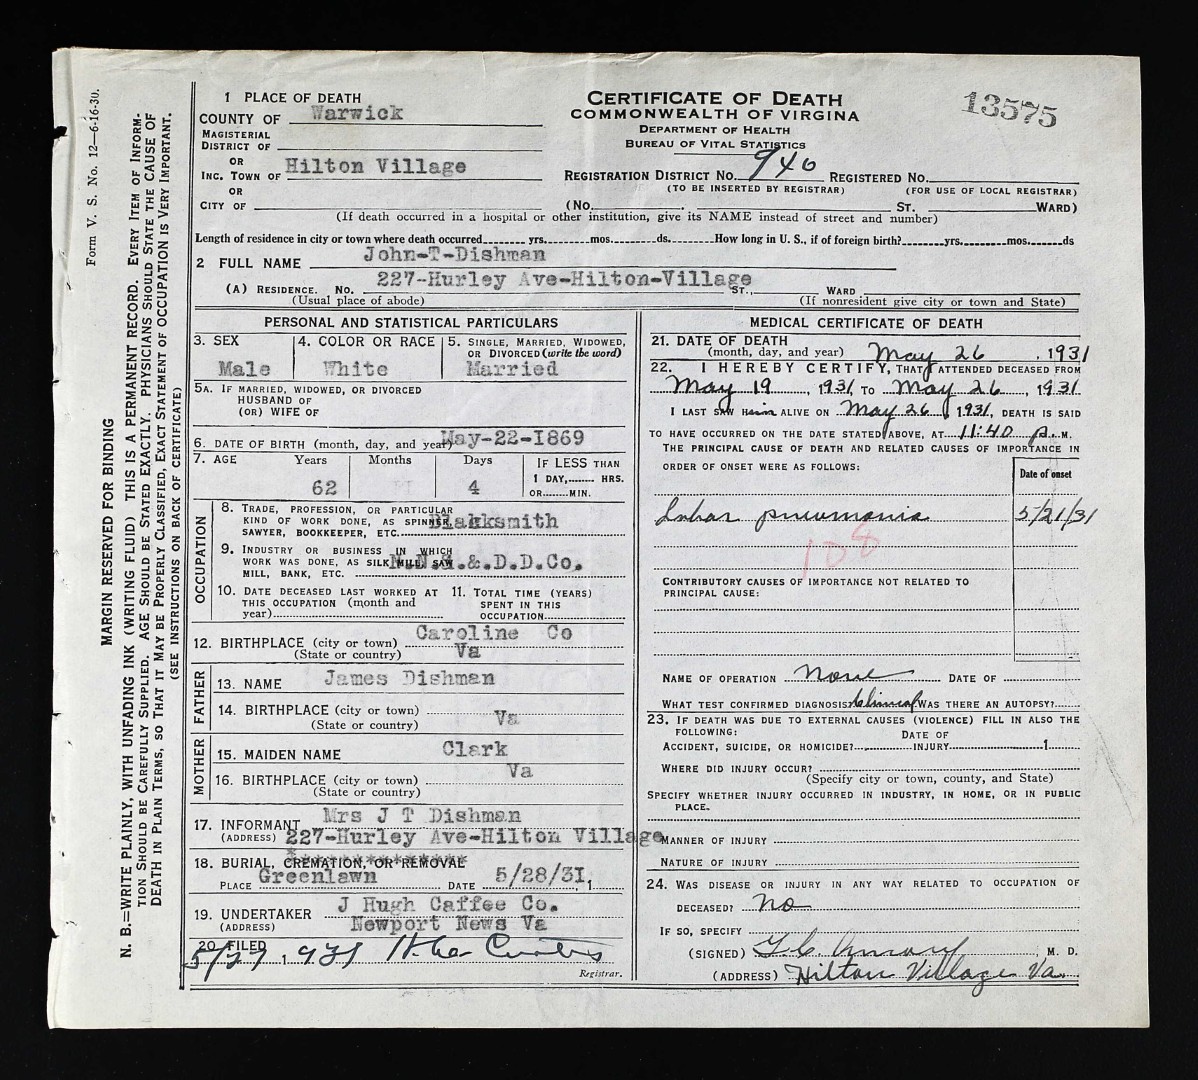 Form V. S. No. 12—6-16-30.
MARGIN RESERVED FOR BINDING
N. B.=WRITE PLAINLY, WITH UNFADING INK (WRITING FLUID) THIS IS A PERMANENT RECORD. EVERY ITEM OF INFORM-
TION SHOULD BE CAREFULLY SUPPLIED. AGE SHOULD BE STATED EXACTLY. PHYSICIANS SHOULD STATE THE CAUSE OF
DEATH IN PLAIN TERMS, SO THAT IT MAY BE PROPERLY CLASSIFIED, EXACT STATEMENT OF OCCUPATION IS VERY IMPORTANT.
(SEE INSTRUCTIONS ON BACK OF CERTIFICATE)
1 PLACE OF DEATH
COUNTY OF Warwick
MAGISTERIAL
DISTRICT OF
OR
INC. TOWN OF Hilton Village
OR
CITY OF
CERTIFICATE OF DEATH
COMMONWEALTH OF VIRGINIA
DEPARTMENT OF HEALTH
BUREAU OF VITAL STATISTICS
13575
REGISTRATION DISTRICT NO. 940 REGISTERED NO.
(TO BE INSERTED BY REGISTRAR) (FOR USE OF LOCAL REGISTRAR)
(No. ST. WARD)
(If death occurred in a hospital or other institution, give its NAME instead of street and number)
Length of residence in city or town where death occurred yrs. mos. ds. How long in U. S., if of foreign birth? yrs. mos. ds
2 FULL NAME John-T-Dishman
(A) RESIDENCE. No. 227-Hurley Ave-Hilton-Village ST., WARD
(Usual place of abode) (If nonresident give city or town and State)
PERSONAL AND STATISTICAL PARTICULARS
3. SEX Male
4. COLOR OR RACE White
5. SINGLE, MARRIED, WIDOWED,
OR DIVORCED (write the word)
Married
5A. IF MARRIED, WIDOWED, OR DIVORCED
HUSBAND OF
(OR) WIFE OF
6. DATE OF BIRTH (month, day, and year) May-22-1869
7. AGE Years Months Days IF LESS THAN
1 DAY, HRS.
62 4 OR MIN.
OCCUPATION
8. TRADE, PROFESSION, OR PARTICULAR
KIND OF WORK DONE, AS SPINNER, Blacksmith
SAWYER, BOOKKEEPER, ETC.
9. INDUSTRY OR BUSINESS IN WHICH
WORK WAS DONE, AS SILK MILL, SAW N.N.S.&.D.D.Co.
MILL, BANK, ETC.
10. DATE DECEASED LAST WORKED AT
THIS OCCUPATION (month and
year)
11. TOTAL TIME (YEARS)
SPENT IN THIS
OCCUPATION
12. BIRTHPLACE (city or town) Caroline Co
(State or country) Va
FATHER
13. NAME James Dishman
14. BIRTHPLACE (city or town)
(State or country) Va
MOTHER
15. MAIDEN NAME Clark
16. BIRTHPLACE (city or town) Va
(State or country)
17. INFORMANT Mrs J T Dishman
(ADDRESS) 227-Hurley Ave-Hilton Village
18. BURIAL, CREMATION, OR REMOVAL
PLACE Greenlawn DATE 5/28/31, 1
19. UNDERTAKER J Hugh Caffee Co.
(ADDRESS) Newport News Va
20. FILED 5/27, 1931
Registrar.
MEDICAL CERTIFICATE OF DEATH
21. DATE OF DEATH
(month, day, and year) May 26, 1931
22. I HEREBY CERTIFY, THAT I ATTENDED DECEASED FROM
May 19, 1931, TO May 26, 1931
I LAST SAW Him ALIVE ON May 26, 1931, DEATH IS SAID
TO HAVE OCCURRED ON THE DATE STATED ABOVE, AT 11:40 P. M.
THE PRINCIPAL CAUSE OF DEATH AND RELATED CAUSES OF IMPORTANCE IN
ORDER OF ONSET WERE AS FOLLOWS:
Date of onset
Lobar pneumonia 5/21/31
108
CONTRIBUTORY CAUSES OF IMPORTANCE NOT RELATED TO
PRINCIPAL CAUSE:
NAME OF OPERATION None DATE OF
WHAT TEST CONFIRMED DIAGNOSIS? Clinical WAS THERE AN AUTOPSY?
23. IF DEATH WAS DUE TO EXTERNAL CAUSES (VIOLENCE) FILL IN ALSO THE
FOLLOWING:
DATE OF
ACCIDENT, SUICIDE, OR HOMICIDE? INJURY 1
WHERE DID INJURY OCCUR?
(Specify city or town, county, and State)
SPECIFY WHETHER INJURY OCCURRED IN INDUSTRY, IN HOME, OR IN PUBLIC
PLACE.
MANNER OF INJURY
NATURE OF INJURY
24. WAS DISEASE OR INJURY IN ANY WAY RELATED TO OCCUPATION OF
DECEASED? No
IF SO, SPECIFY
(SIGNED) M. D.
(ADDRESS) Hilton Village Va.